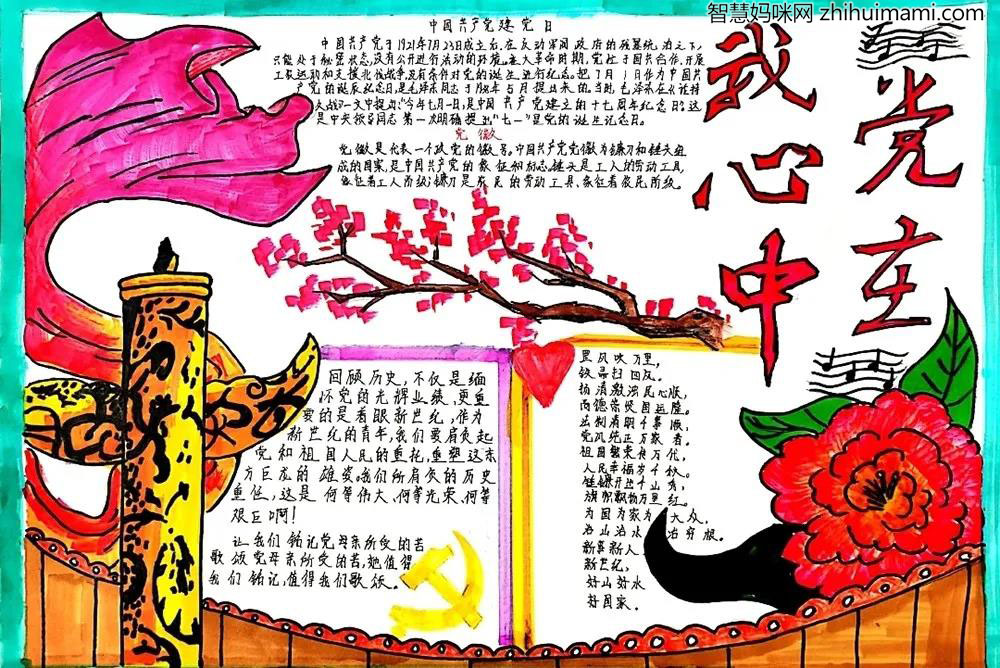 智慧妈咪网 zhihuimami.com
党在
我心中
中国共产党建党日
中国共产党于1921年7月23日成立后,在反动军阀政府的残暴统治之下,
只能处于秘密状态,没有公开进行活动的环境。在大革命时期,党忙于国共合作、开展
工农运动和支援北伐战争,没有条件对党的诞生进行纪念。把7月1日作为中国共
产党的诞辰纪念日,是毛泽东同志于1938年5月提出来的。当时,毛泽东在《论持
久战》一文中提出:"今年七月一日,是中国共产党建立的十七周年纪念日。"这
是中央领导同志第一次明确提出"七一"是党的诞生纪念日。
党徽
党徽是代表一个政党的徽号。中国共产党党徽为镰刀和锤头组
成的图案,是中国共产党的象征和标志,锤头是工人的劳动工具,
象征着工人阶级;镰刀是农民的劳动工具,象征着农民阶级。
回顾历史,不仅是缅
怀党的光辉业绩,更重
要的是着眼新世纪,作为
新世纪的青年,我们要肩负起
党和祖国人民的重托,重塑这东
方巨龙的雄姿。我们所肩负的历史
重任,这是何等伟大、何等光荣、何等
艰巨啊!
让我们铭记党母亲所受的苦
歌颂党母亲所受的苦,她值得
我们铭记,值得我们歌颂。
黑风吹万里,
铁帚扫四友。
扬清激浊民心顺,
尚德崇贤国运隆。
法制清明千事顺,
党风纯正万家春。
祖国繁荣传万代,
人民幸福岁千秋。
锤镰开出千山秀,
旗帜飘扬万里红。
为国为家为大众,
治山治水治穷根。
新事新人
新世纪,
好山好水
好国家。